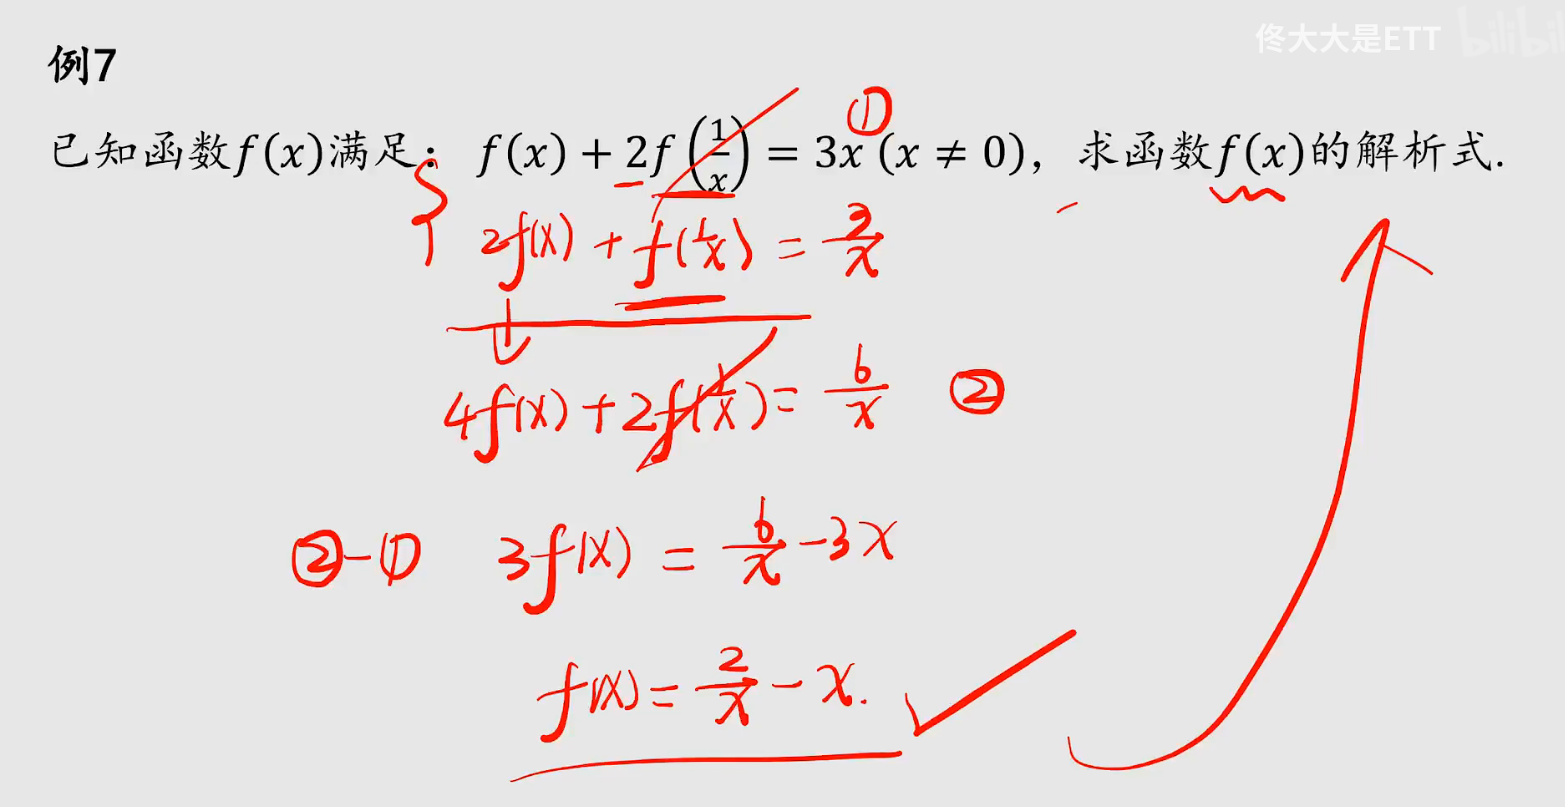 佟大大是ETT bilibili
例7
①
已知函数f(x)满足：f(x) + 2f(1/x) = 3x (x ≠ 0)，求函数f(x)的解析式.
2f(x) + f(1/x) = 3/x
4f(x) + 2f(1/x) = 6/x ②
②-① 3f(x) = 6/x - 3x
f(x) = 2/x - x.